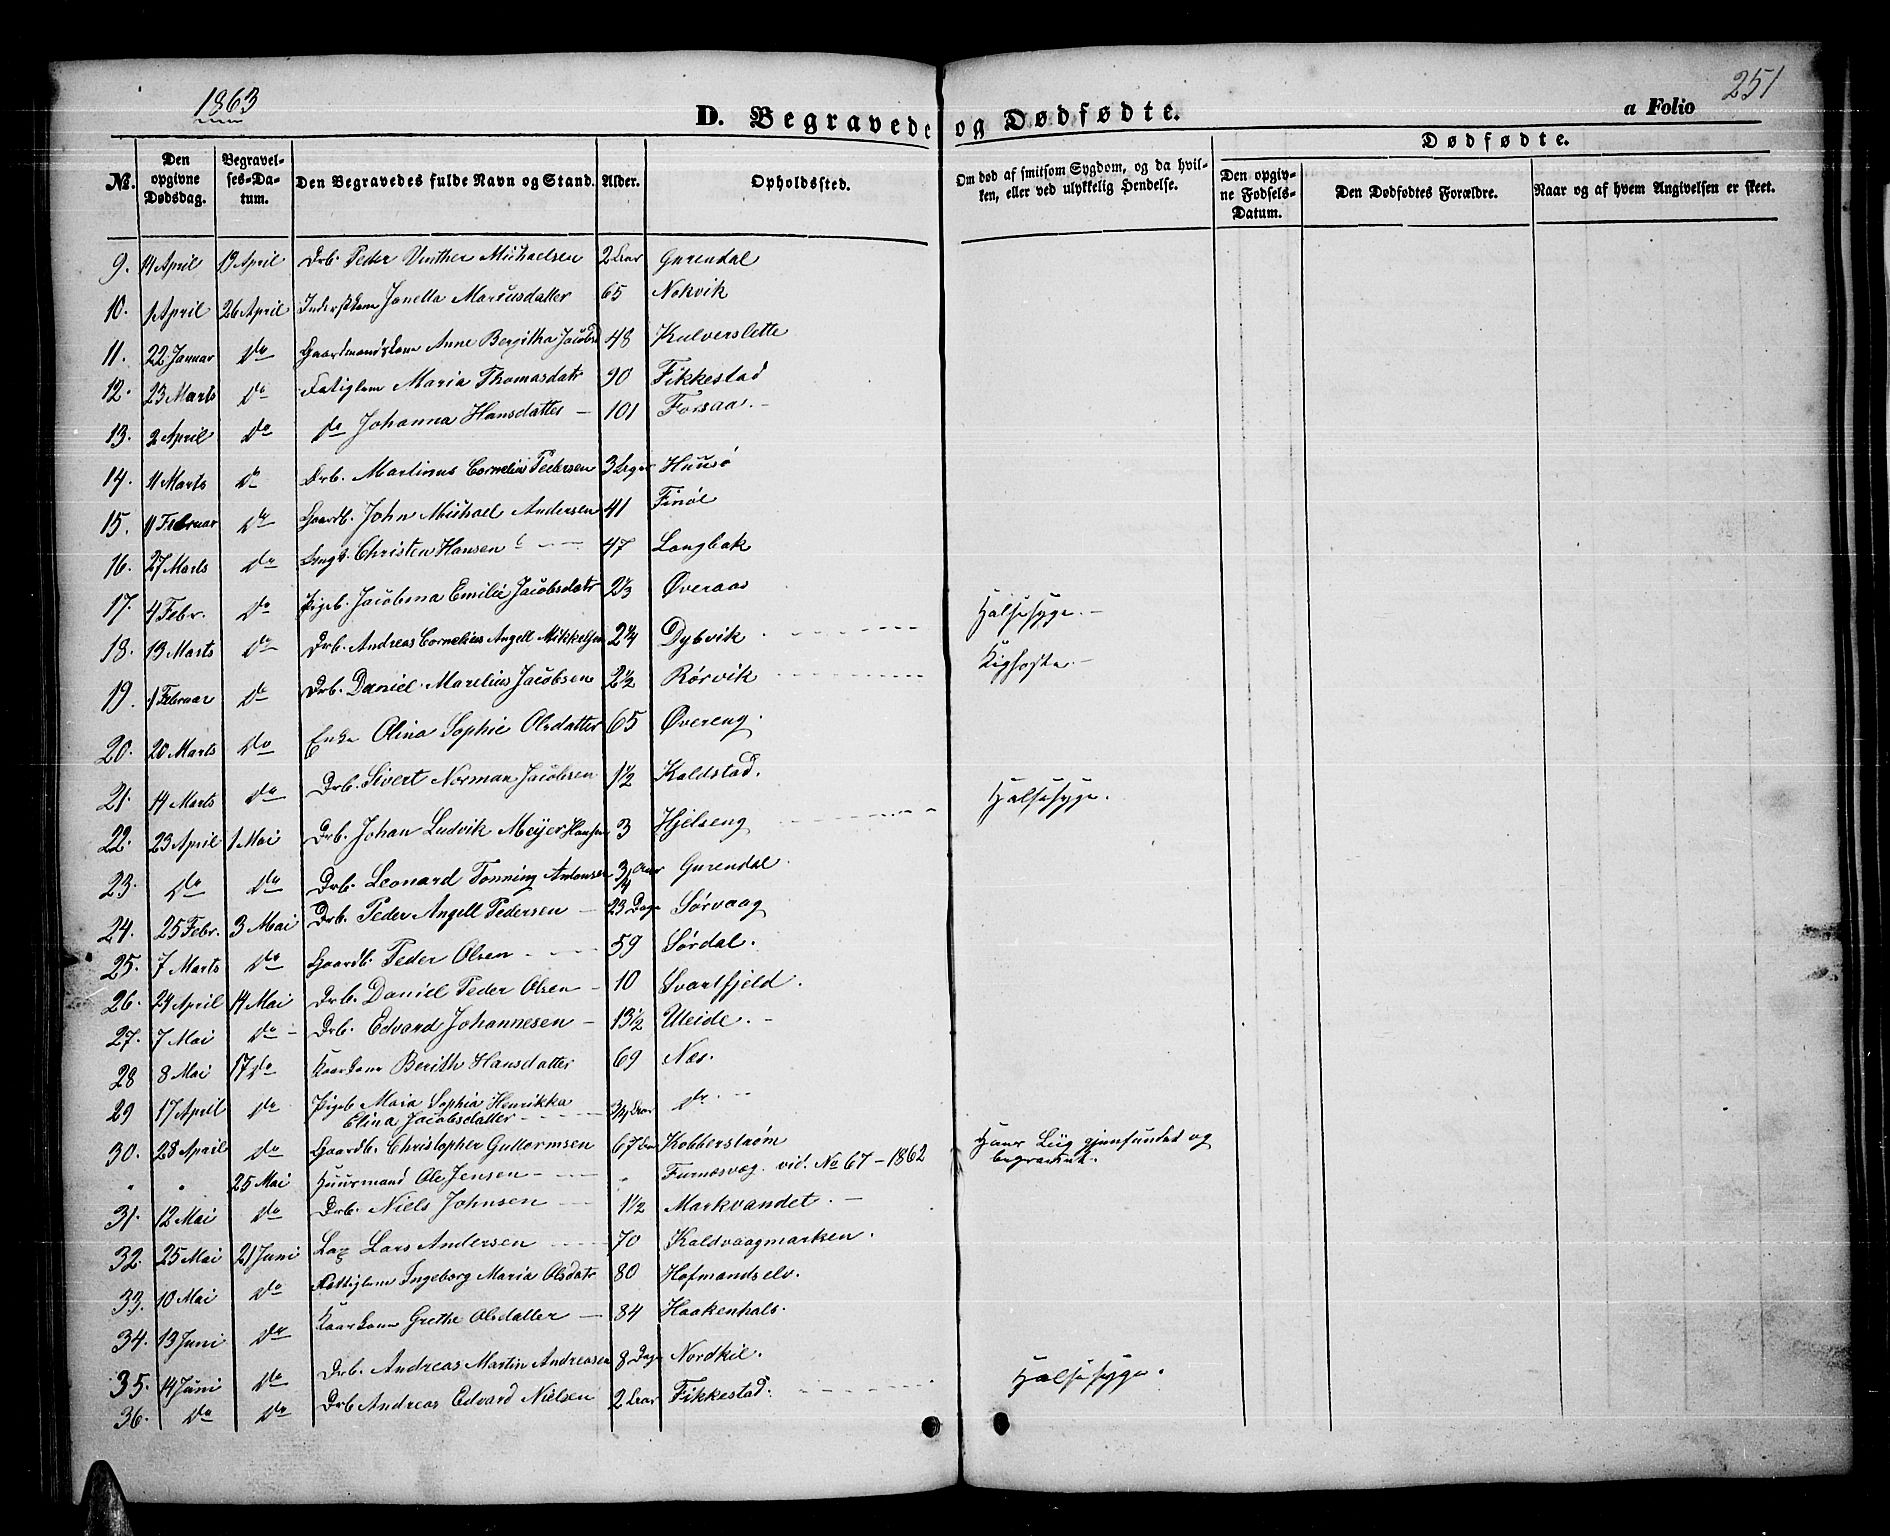 1863
251
D. Begravede og Dødfødte.
a Folio
Dødfødte.
No. Den opgivne Dødsdag. Begravelses-Datum. Den Begravedes fulde Navn og Stand. Alder. Opholdssted. Om død af smitsom Sygdom, og da hvilken, eller ved ulykkelig Hendelse. Den opgivne Fødsels-Datum. Den Dødfødtes Forældre. Naar og af hvem Angivelsen er skeet.
9. 14 April 19 April Drb. Peder Vinther Michaelsen 2 Aar Gurendal
10. 1 April 26 April Janetta Marcusdatter 65 Nokvik
11. 22 Januar Do Gaardmandskone Anne Bergitha Jacobsd 48 Kulverslette
12. 23 Marts Do Fatiglem Maria Thomasdatr 90 Fikkestad
13. 2 April Do do Johanna Hansdatter - 101 Forsaa. -
14. 11 Marts Do Drb. Martinus Cornelius Pedersen 3 Huusø
15. 11 Februar Do Gaardb. John Michael Andersen 41 Finöl
16. 27 Marts Do Christen Hansen 47 Langbak
17. 4 Febr. Do Pigeb. Jacobina Emilie Jacobsdatr 2 1/3 Øveraas Halsesyge. -
18. 13 Marts Do Drb. Andreas Cornelius Angell Mikkelsen 2 1/4 Dybvik Kighoste. -
19. 1 Februar Do Drb. Daniel Marelius Jacobsen 2 1/2 Rørvik
20. 20 Marts Do Enke Olina Sophie Olsdatter 65 Øvereng.
21. 14 Marts Do Drb. Sivert Norman Jacobsen 1 1/2 Kaldstad. Halsesyge.
22. 23 April 1 Mai Drb. Johan Ludvik Meyer Hansen 3 Hjelseng
23. Do Do Drb. Leonard Tonning Antonsen 3/4 Aar Gurendal.
24. 25 Febr. 3 Mai Drb. Peder Angell Pedersen - 23 Dage Sørvaag
25. 7 Marts Do Gaardb. Peder Olsen 59 Sørdal.
26. 24 April 14 Mai Drb. Daniel Peder Olsen - 10 Svartfjeld.
27. 7 Mai Do - Drb. Edvard Johannesen - 13 1/2 Uleide. -
28 8 Mai 17 Do Kaarkone Berith Hansdatter 69 Næs.
29 17 April Do Pigeb. Maia Sophia Henrikka
Elina Jacobsdatter 3/4 Aar Do
30. 28 April Do Gaardb. Christopher Guttormsen 67 Aar Kobberstrøm
" " 25 Mai Huusmand Ole Jensen " Furnesvæg. vid. No 67 - 1862 Hans Liig gjenfundet og
begravet.
31. 12 Mai Do Drb. Niels Johnsen 1 1/2 Markvandet. -
32. 25 Mai 21 Juni Lap Lars Andersen 70 Kaldvaagmarken.
33. 10 Mai Do Fattiglem Ingeborg Maria Olsdatr 80 Hofmandselv.
34. 13 Juni Do Kaarkone Grethe Olsdatter - 84 Haakenhals.
35. 14 Juni Do Drb. Andreas Martin Andreasen 8 Dage Nordkil.
36. Do Do Drb Andreas Edvard Nielsen 2 Aar Fikkestad. Halsesyge.